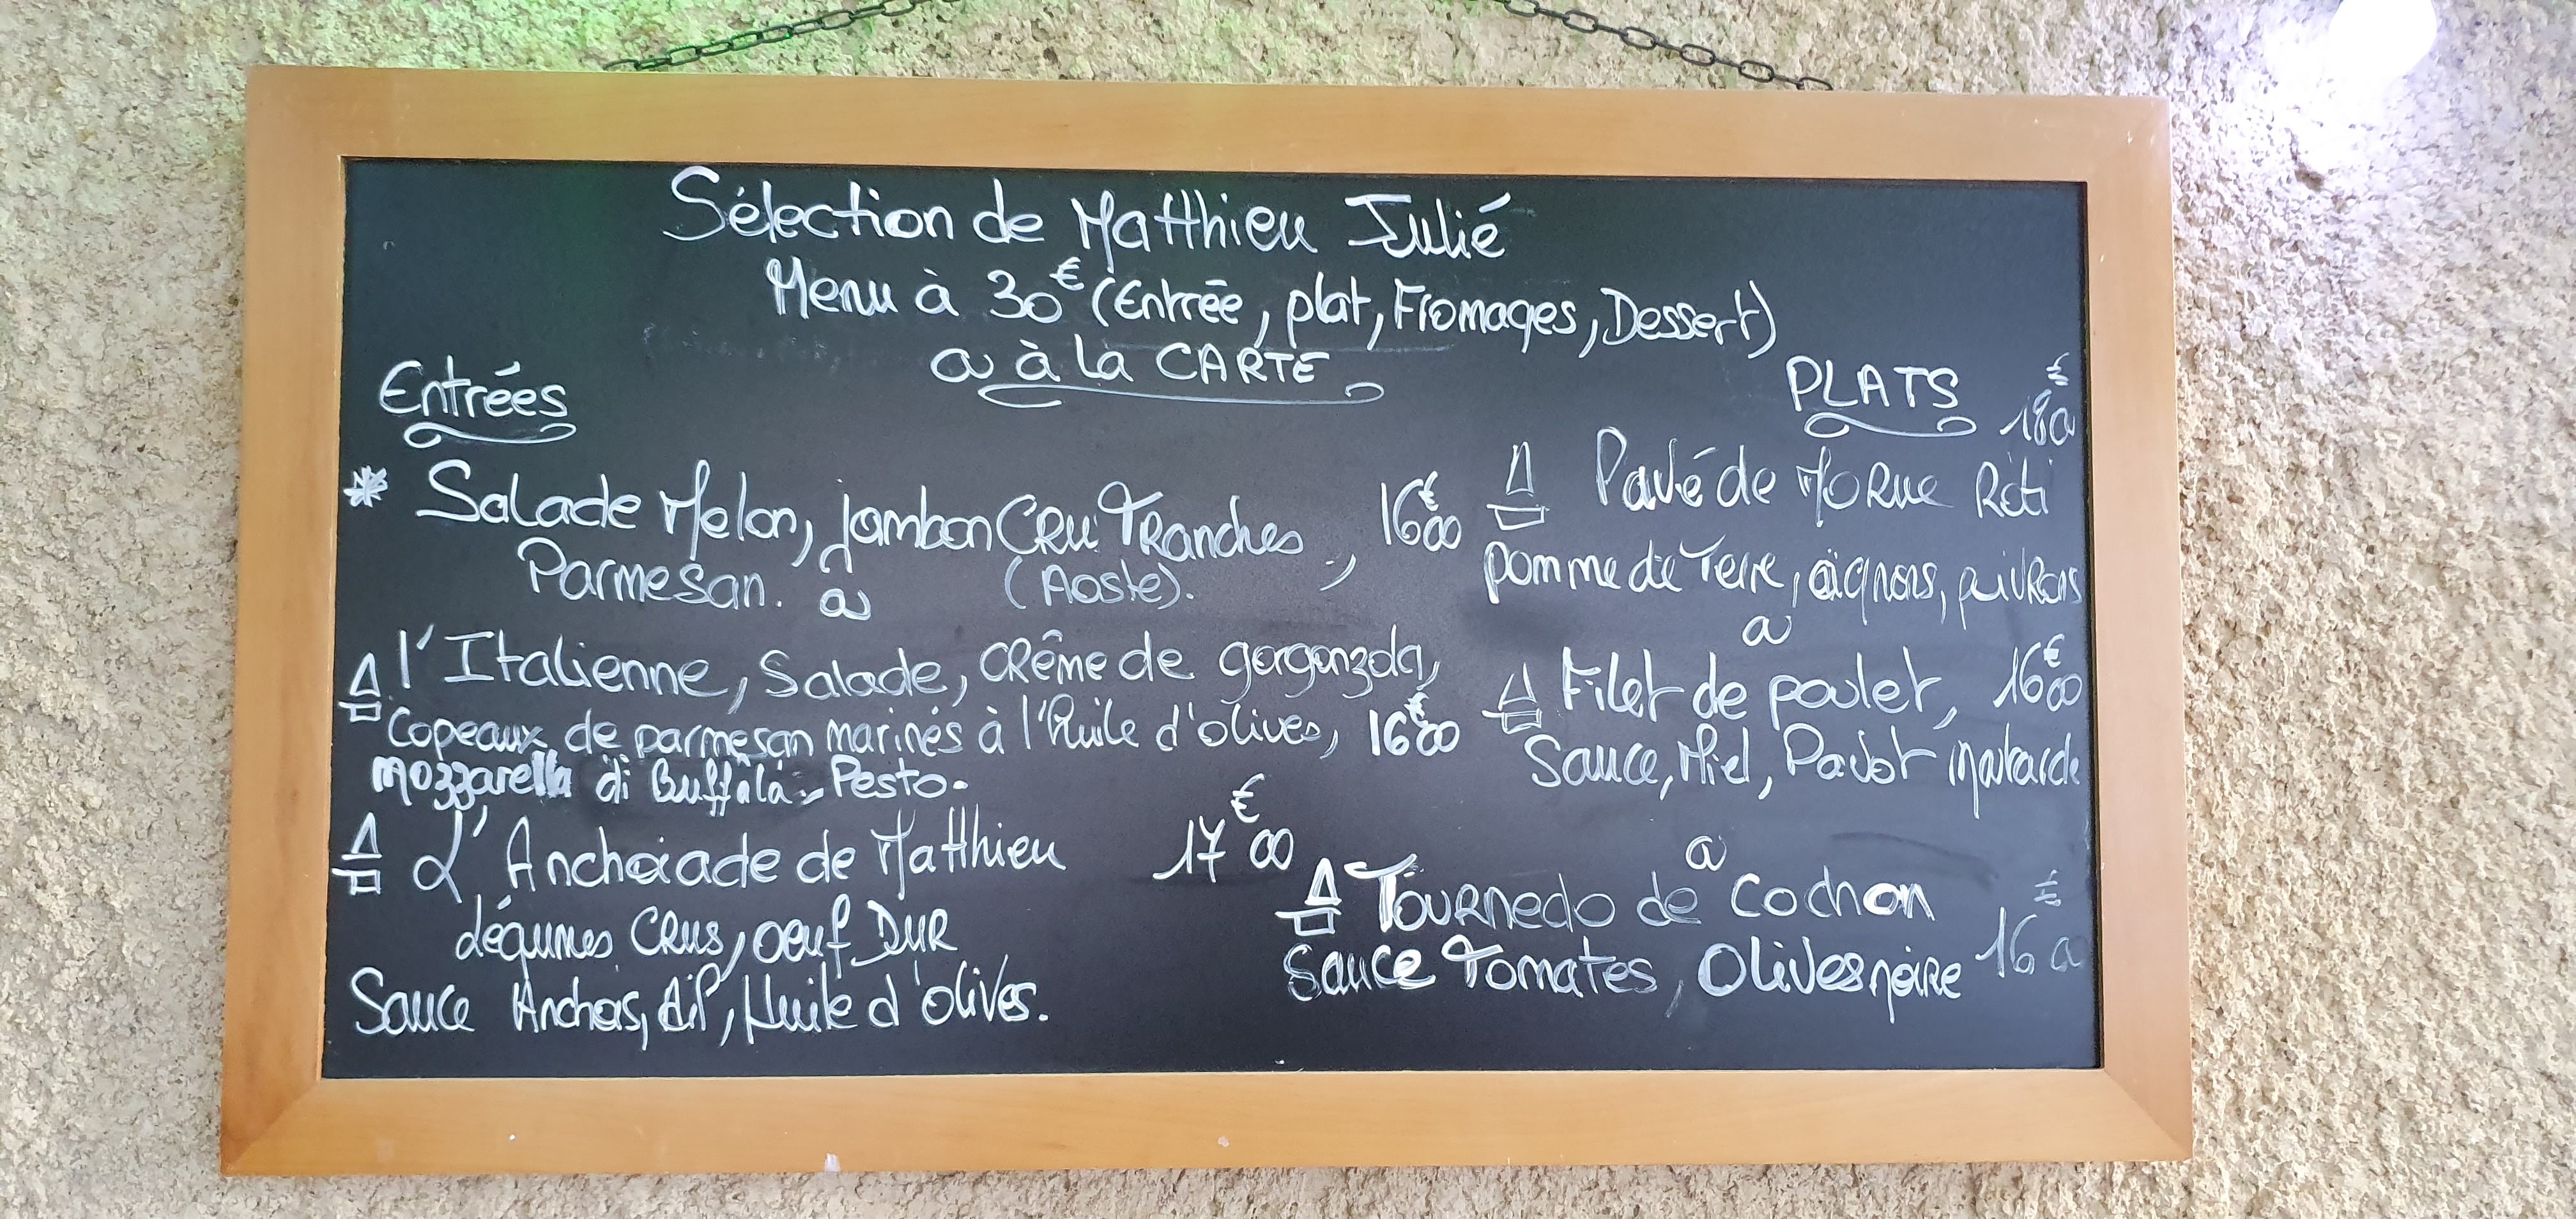 Sélection de Matthieu Julié
Menu à 30€ (Entrée, plat, Fromages, Dessert)
ou à la CARTE
Entrées
* Salade Melon, jambon CRU Tranches, 16€00
Parmesan. ou (Aoste).
l'Italienne, Salade, crême de gorgonzola,
Copeaux de parmesan marinés à l'huile d'olives, 16€00
mozzarella di Buffala, Pesto.
L'Anchoiade de Matthieu 17€00
légumes CRUS, oeuf DUR
Sauce Anchois, Ail, Huile d'olives.
PLATS
18€00
Pavé de MORUE Roti
pomme de Terre, oignons, poivrons
ou
Filet de poulet, 16€00
Sauce, Miel, Pavot moutarde
ou
Tournedo de Cochon
Sauce Tomates, Olives noire 16€00